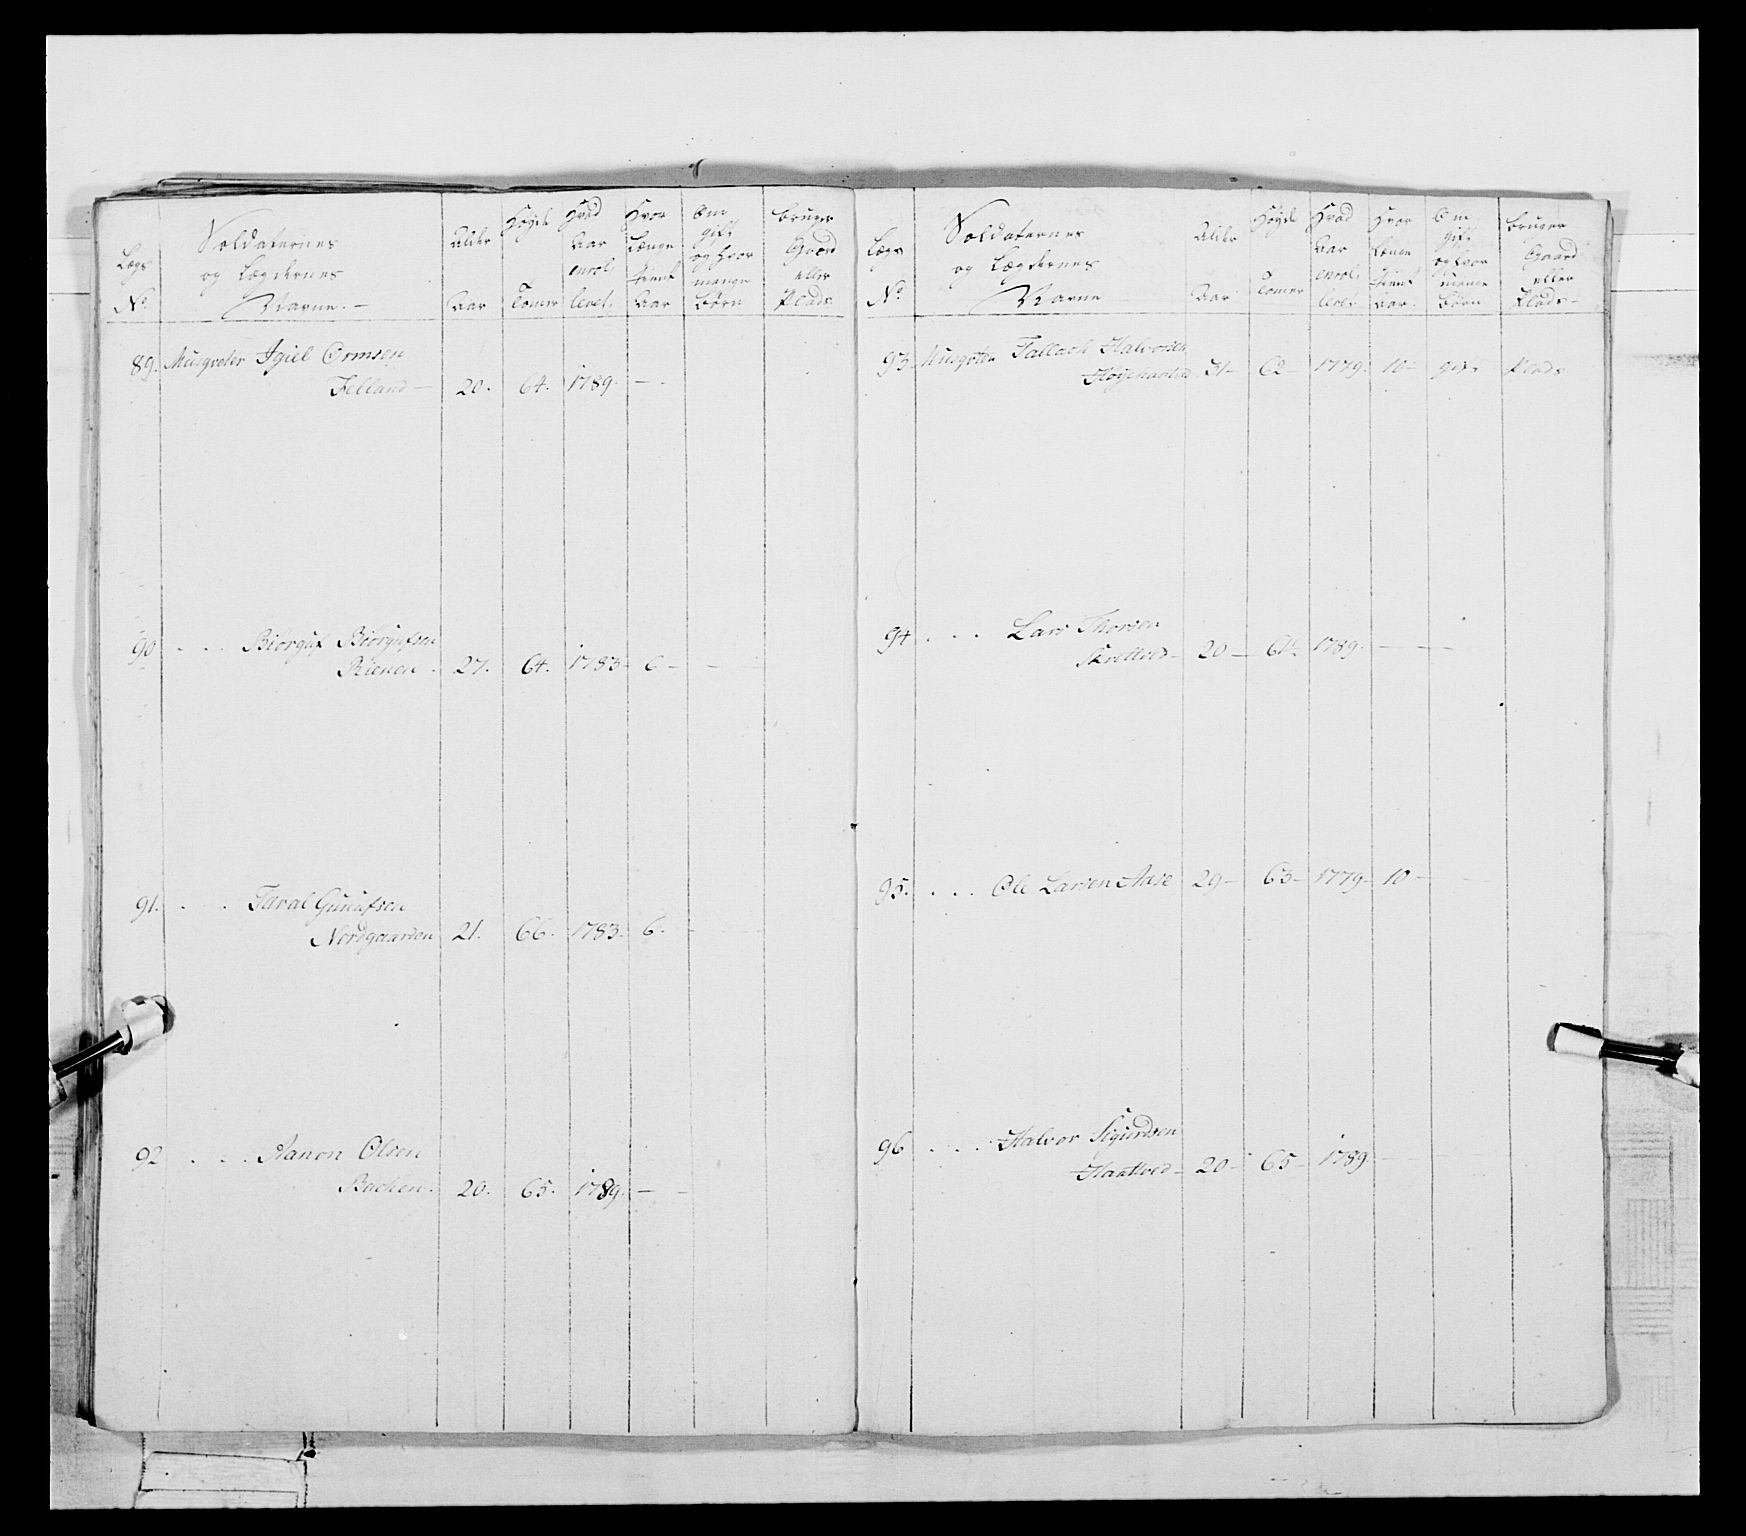 Lægs
No.
Soldaternes
og Lægdernes
Navne. —
Alder
Aar
Høyde
Tomer
Hvad
Aar
enrol-
leret.
Hvor
Længe
tient
Aar
Om
gift
og hvor
mange
Børn
bruger
Gaard
eller
Plads
89. Musqveter Igiel Ormsen
Felland — 20. 64. 1789. — -
90 . . . Biorguf Biorgufsen
Rienen . 27. 64. 1783 - 6 - -
91. . . Taral Gunufsen
Nordgaarden 21. 66. 1783. 6. -
92 . . . Aanon Olsen
Backen. 20. 65. 1789. — -
Lægs
No
Soldaternes
og Lægdernes
Navne
Alder
Aar
Høyde
Tomer
Hvad
Aar
enrol-
leret
Hvor
Længe
tient
Aar.
Om
gift
og hvor
mange
Børn
bruger
Gaard
eller
Plads -
93. Musqveter Tallach Halvorsen
31 - 62 - 1779. 10 - gift Plads
94 . . . Lars Thorsen
Skrettved - 20 — 64. 1789. — — —
95. . . . Ole Larsen Aase 29 - 63 - 1779 - 10 -
96 . . . Halvor Sigurdsen
Haattved - 20 - 65 - 1789. —